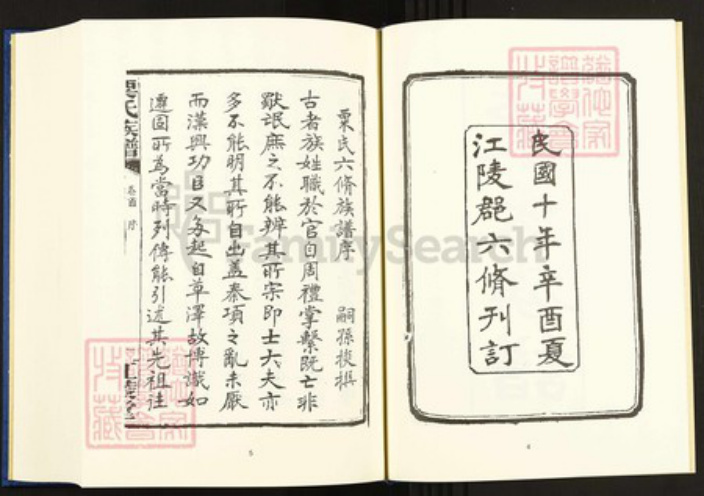 民國十年辛酉夏
江陵郡六脩刋訂
4
栗氏六脩族譜序
嗣孫 撰
古者族姓職於官自周禮掌繫既亡非
獨氓庶之不能辨其所宗即士大夫亦
多不能明其所自出蓋秦項之亂未厭
而漢興功臣又多起自草澤故博識如
遷固所為當時列傳能引述其先祖往
栗氏族譜
卷首 序
5
FamilySearch